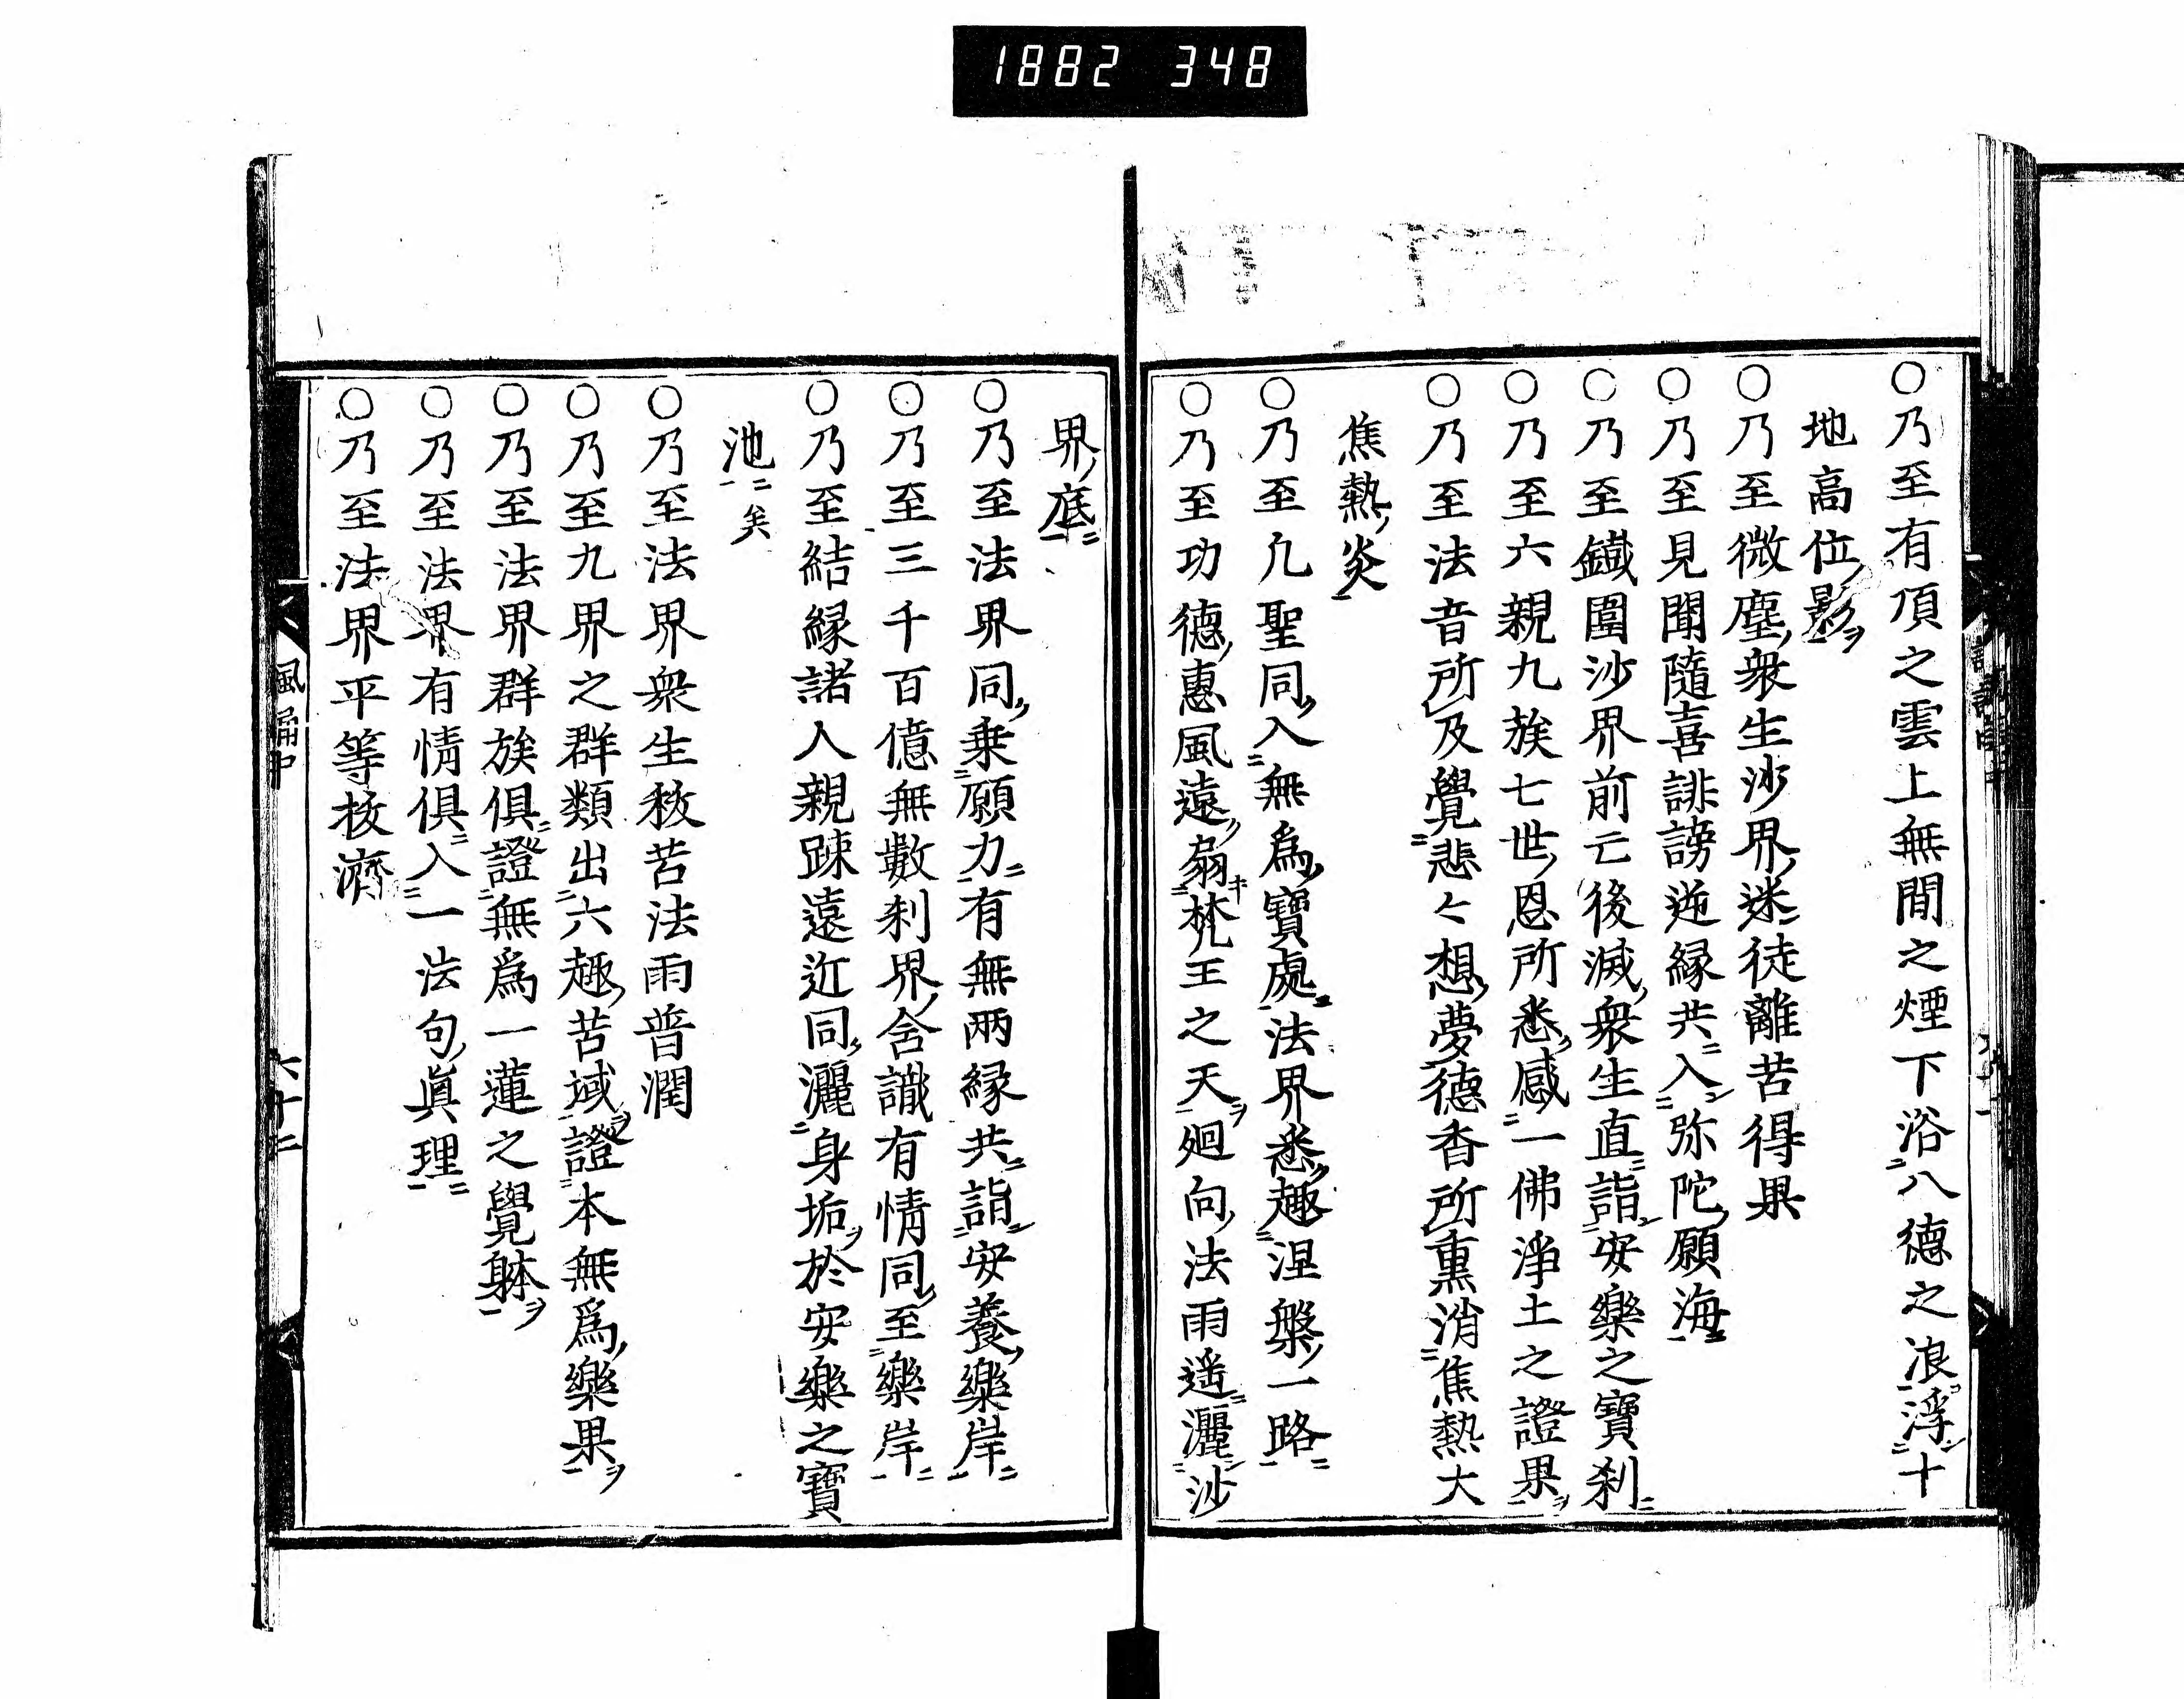 1882 348
○乃至有頂之雲上無間之煙下浴八德之浪浮十
地高位影
○乃至微塵衆生沙界迷徒離苦得果
○乃至見聞隨喜誹謗逆緣共入弥陀願海
○乃至鐵圍沙界前亡後滅衆生直詣安樂之寶刹
○乃至六親九族七世恩所悉感一佛淨土之證果
○乃至法音所及覺悲々想夢德香所熏消焦熱大
焦熱炎
○乃至凡聖同入無爲寶處法界悉趣涅槃一路
○乃至功德惠風遠扇梵王之天廻向法雨遥灑沙
界底
○乃至法界同乗願力有無兩緣共詣安養樂岸
○乃至三千百億無數刹界含識有情同至樂岸
○乃至結緣諸人親踈遠近同灑身垢於安樂之寶
池矣
○乃至法界衆生救苦法雨普潤
○乃至九界之群類出六趣苦域證本無爲樂果
○乃至法界群族俱證無爲一蓮之覺躰
○乃至法界有情俱入一法句眞理
○乃至法界平等拔濟
風誦中
六十二